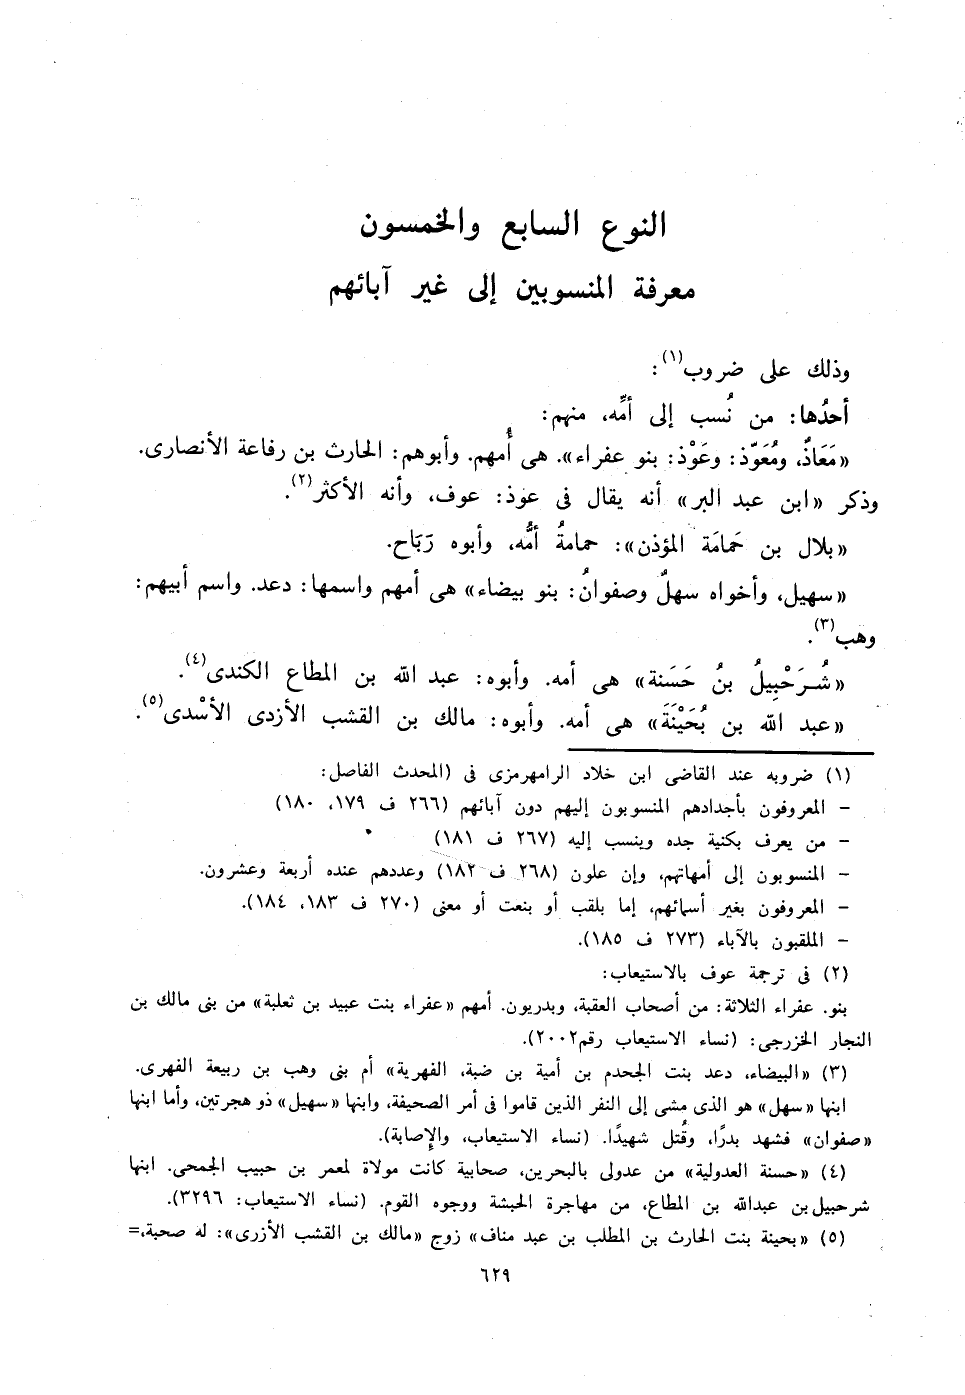 النوع السابع والخمسون
معرفة المنسوبين إلى غير آبائهم
وذلك على ضروب(١):
أحدُها: من نُسب إلى أمِّه، منهم:
«مَعَاذٌ، ومُعَوّذ: وعَوْذ: بنو عفراء». هى أُمهم. وأبوهم: الحارث بن رفاعة الأنصارى.
وذكر «ابن عبد البر» أنه يقال فى عوذ: عوف، وأنه الأكثر(٢).
«بلال بن حَمامَة المؤذن»: حمامةُ أمُّه، وأبوه رَبَاح.
«سهيل، وأخواه سهلٌ وصفوانُ: بنو بيضاء» هى أمهم واسمها: دعد. واسم أبيهم:
وهب(٣).
«شُرَحْبِيلُ بنُ حَسَنة» هى أمه. وأبوه: عبد الله بن المطاع الكندى(٤).
«عبد الله بن بُحَيْنَةَ» هى أمه. وأبوه: مالك بن القشب الأزدى الأسْدى(٥).
(١) ضروبه عند القاضى ابن خلاد الرامهرمزى فى (المحدث الفاصل:
– المعروفون بأجدادهم المنسوبون إليهم دون آبائهم (٢٦٦ ف ١٧٩، ١٨٠)
– من يعرف بكنية جده وينسب إليه (٢٦٧ ف ١٨١)
– المنسوبون إلى أمهاتهم، وإن علون (٢٦٨ ف ١٨٢) وعددهم عنده أربعة وعشرون.
– المعروفون بغير أسمائهم، إما بلقب أو بنعت أو معنى (٢٧٠ ف ١٨٣، ١٨٤).
– الملقبون بالآباء (٢٧٣ ف ١٨٥).
(٢) فى ترجمة عوف بالاستيعاب:
بنو. عفراء الثلاثة: من أصحاب العقبة، وبدريون. أمهم «عفراء بنت عبيد بن ثعلبة» من بنى مالك بن
النجار الخزرجى: (نساء الاستيعاب رقم٢٠٠٢).
(٣) «البيضاء، دعد بنت الجحدم بن أمية بن ضبة، الفهرية» أم بنى وهب بن ربيعة الفهرى.
ابنها «سهل» هو الذى مشى إلى النفر الذين قاموا فى أمر الصحيفة، وابنها «سهيل» ذو هجرتين، وأما ابنها
«صفوان» فشهد بدرًا، وقُتل شهيدًا. (نساء الاستيعاب، والإصابة).
(٤) «حسنة العدولية» من عدولى بالبحرين، صحابية كانت مولاة لمعمر بن حبيب الجمحى. ابنها
شرحبيل بن عبدالله بن المطاع، من مهاجرة الحبشة ووجوه القوم. (نساء الاستيعاب: ٣٢٩٦).
(٥) «بحينة بنت الحارث بن المطلب بن عبد مناف» زوج «مالك بن القشب الأزرى»: له صحبة،=
٦٢٩